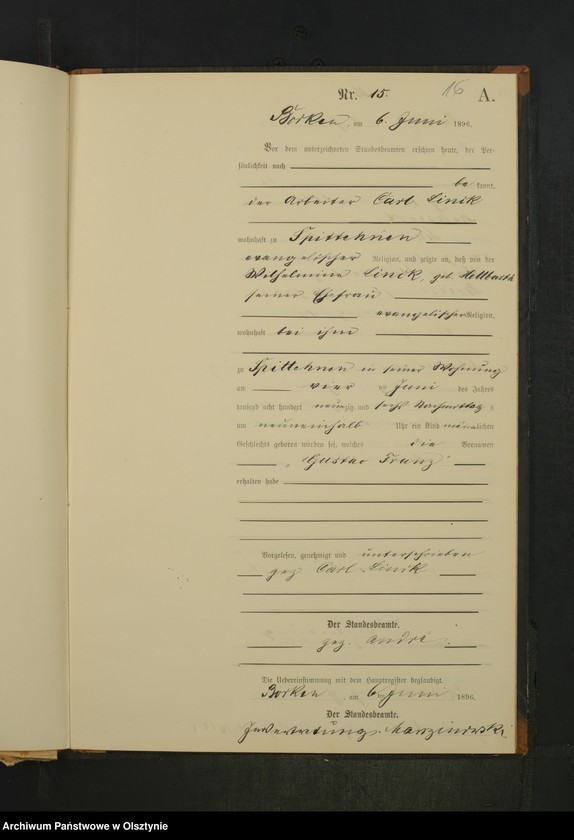 16
Nr. 15. A.
Borken am 6. Juni 1896.
Vor dem unterzeichneten Standesbeamten erschien heute, der Per-
sönlichkeit nach
be kannt,
der Arbeiter Carl Linik
wohnhaft zu Spittehnen
evangelischer Religion, und zeigte an, daß von der
Wilhelmine Linik, geb. Hellbarth
seiner Ehefrau
evangelischer Religion,
wohnhaft bei ihm
zu Spittehnen in seiner Wohnung
am vier Juni des Jahres
tausend acht hundert neunzig und sechs Nachmittag s
um neuneinhalb Uhr ein Kind männlichen
Geschlechts geboren worden sei, welches die Vornamen
Gustav Franz
erhalten habe
Vorgelesen, genehmigt und unterschrieben
gez Carl Linik
Der Standesbeamte.
gez. André.
Die Uebereinstimmung mit dem Hauptregister beglaubigt.
Borken, am 6 Juni 1896.
Der Standesbeamte.
In Vertretung.
Archiwum Państwowe w Olsztynie